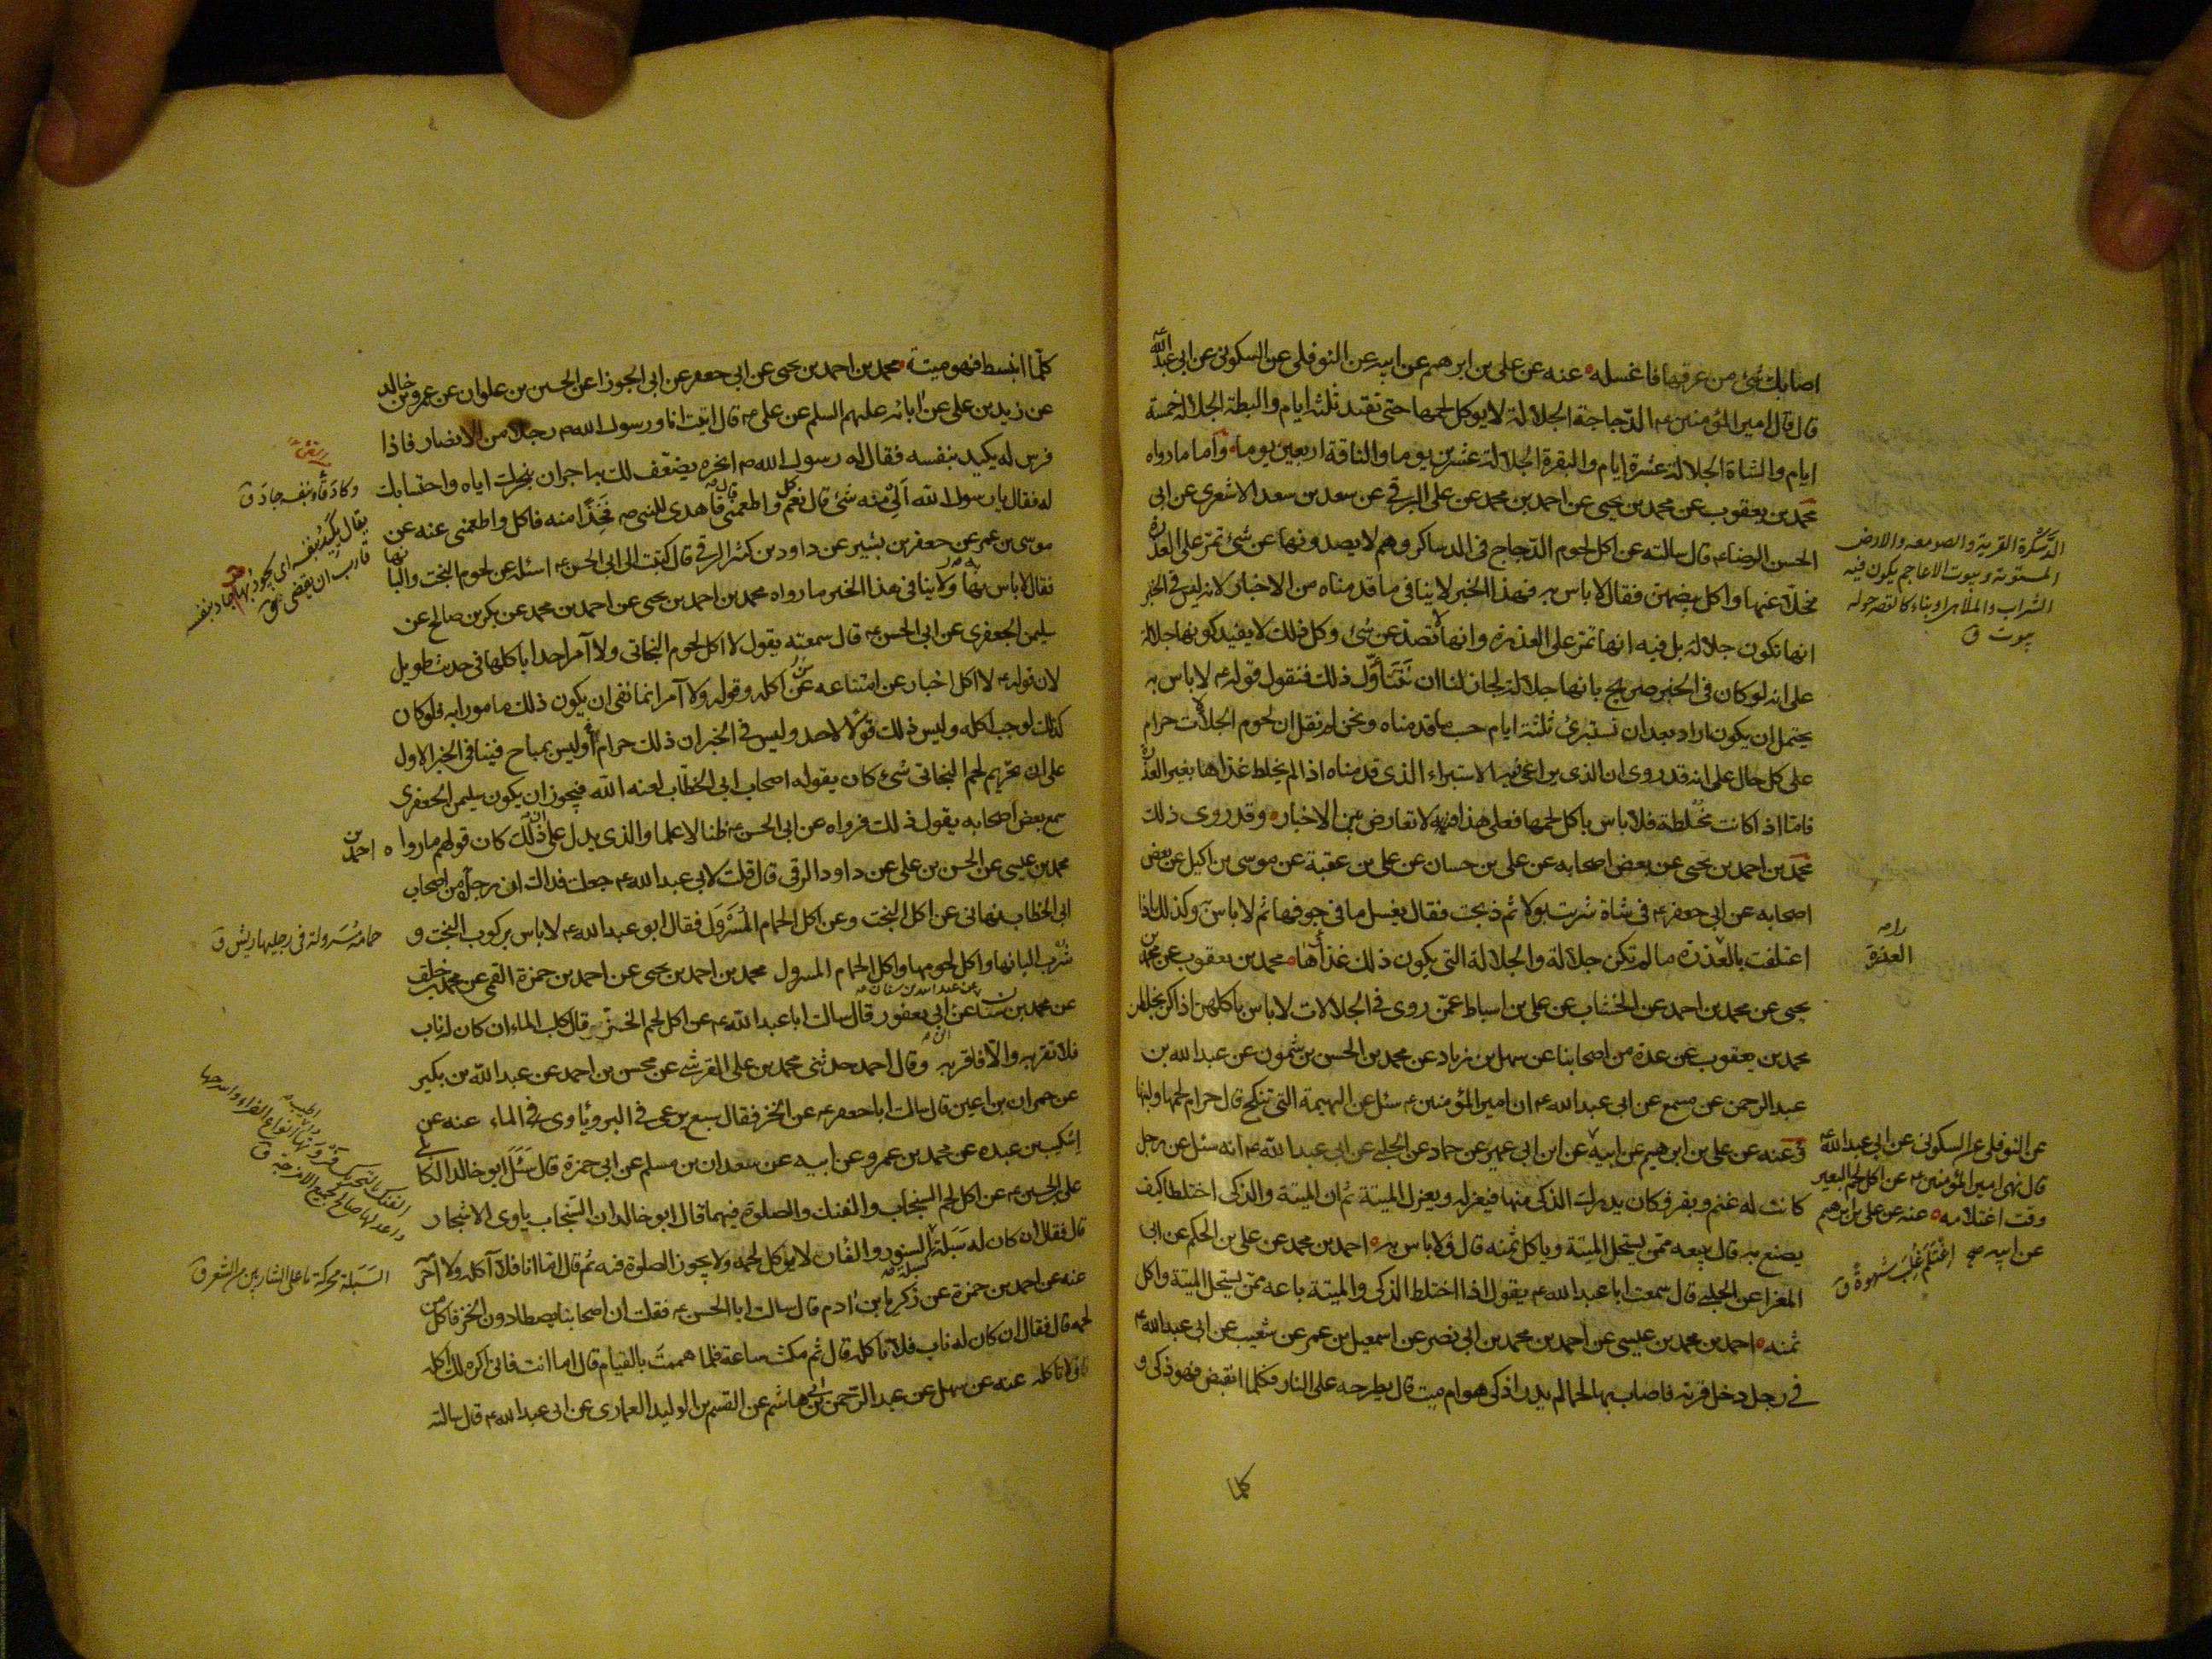 اصابك شئ من عرقها فاغسله عنه عن علي بن ابرهيم عن ابيه عن النوفلي عن السكوني عن ابي عبد الله
قال قال امير المؤمنين ع الدجاجة الجلالة لا يوكل لحمها حتى تقتد ثلثه ايام والبطة الجلالة خمسة
ايام والشاة الجلالة عشرة ايام والبقرة الجلالة عشرين يوما والناقة اربعين يوما واما ما رواه
محمد بن يعقوب عن محمد بن يحيى عن احمد بن محمد عن علي البرقي عن سعد بن سعد الاشعري عن ابي
الحسن الرضا ع قال سالته عن اكل لحوم الدجاج في الدساكر وهم لا يصدونها عن شئ تمر على العذرة
مخلا عنها واكل بيضهن فقال لا باس به فهذا الخبر لا ينافي ما قدمناه من الاخبار لانه ليس في الخبر
انها تكون جلالة بل فيه انها تمر على العذرة وانها لا تصد عن شئ وكل ذلك لا يفيد كونها جلالة
على انه لو كان في الخبر صريح بانها جلالة لجاز لنا ان نتأول ذلك فنقول قوله ع لا باس به
يحتمل ان يكون اراد بعد ان تستبرئ ثلثة ايام حسب ما قدمناه ونحن لم نقل ان لحوم الجلالات حرام
على كل حال على انه قد روى ان الذي يراعى فيه الاستبراء الذي قدمناه اذا لم يخلط غذاها بغير العذرة
فاما اذا كانت مخلطة فلا باس باكل لحمها فعلى هذا ايضا لا تعارض بين الاخبار وقد روى ذلك
محمد بن احمد بن يحيى عن بعض اصحابه عن علي بن حسان عن علي بن عقبة عن موسى بن اكيل عن بعض
اصحابه عن ابي جعفر ع في شاة شربت بولا ثم ذبحت فقال يغسل ما في جوفها ثم لا باس به وكذلك اذا
اعتلفت بالعذرة ما لم تكن جلالة والجلالة التي يكون ذلك غذاها محمد بن يعقوب عن محمد بن
يحيى عن محمد بن احمد عن الخشاب عن علي بن اسباط عمن روى في الجلالات لا باس باكلهن اذا كن يخلطن
محمد بن يعقوب عن عدة من اصحابنا عن سهل بن زياد عن محمد بن الحسن بن شمون عن عبد الله بن
عبد الرحمن عن مسمع عن ابي عبد الله ع ان امير المؤمنين ع سئل عن البهيمة التي تنكح قال حرام لحمها ولبنها
وعنه عن علي بن ابرهيم عن ابيه عن ابن ابي عمير عن حماد عن الحلبي عن ابي عبد الله ع انه سئل عن رجل
كانت له غنم وبقر فكان يدرك الذكي منها فيعزله ويعزل الميتة ثم ان الميتة والذكي اختلطا كيف
يصنع به قال يبيعه ممن يستحل الميتة وياكل ثمنه قال ولا باس به احمد بن محمد عن علي بن الحكم عن ابي
المغرا عن الحلبي قال سمعت ابا عبد الله ع يقول اذا اختلط الذكي والميتة باعه ممن يستحل الميتة واكل
ثمنه احمد بن محمد بن عيسى عن احمد بن محمد بن ابي نصر عن اسمعيل بن عمر عن شعيب عن ابي عبد الله ع
في رجل دخل قرية فاصاب بها لحما لم يدر اذكي هو ام ميت قال يطرحه على النار فكلما انقبض فهو ذكي و
كلما
الدسكرة القرية والصومعة والارض
المستوية وبيوت الاعاجم يكون فيه
الشراب والملاهي او بناء كالقصر حوله
بيوت ق
العذرة
عن النوفلي عن السكوني عن ابي عبد الله ع
قال نهى امير المؤمنين ع عن اكل لحم البعير
وقت اغتلامه عنه عن علي بن ابرهيم
عن ابيه صح اغتلم غلب شهوة ق
كلما انبسط فهو ميتة محمد بن احمد بن يحيى عن ابي جعفر عن ابي الجوزا عن الحسين بن علوان عن عمرو بن خالد
عن زيد بن علي عن ابائه عليهم السلم عن علي ع قال اتيت انا ورسول الله ص رجلا من الانصار فاذا
فرس له يكيد بنفسه فقال له رسول الله ص انحره يضعف لك به اجران بنحرك اياه واحتسابك
له فقال يا رسول الله ألي منه شئ قال نعم كل واطعمني قال فاهدى للنبي ص فخذا منه فاكل واطعمني عنه عن
موسى بن عمر عن جعفر بن بشير عن داود بن كثير الرقي قال كتبت الى ابي الحسن ع اسئله عن لحوم البخت والبانها
فقال لا باس بها ولا ينافي هذا الخبر ما رواه محمد بن احمد بن يحيى عن احمد بن محمد عن بكر بن صالح عن
سليمن الجعفري عن ابي الحسن ع قال سمعته يقول لا اكل لحوم البخاتى ولا آمر احدا باكلها في حديث طويل
لان قوله ع لا اكل اخبار عن امتناعه عن اكله وقوله ولا آمر انما نفى ان يكون ذلك مامورا به فلو كان
كذلك لوجب اكله وليس ذلك قولا لاحد وليس في الخبر ان ذلك حرام أو ليس بمباح فينافي الخبر الاول
على ان تحريم لحم البخاتى شئ كان يقوله اصحاب ابي الخطاب لعنه الله فيجوز ان يكون سليمن الجعفري
سمع بعض اصحابه يقول ذلك فرواه عن ابي الحسن ع ظنا لا علما والذي يدل على ان ذلك كان قولهم ما رواه احمد بن
محمد بن عيسى عن الحسن بن علي عن داود الرقي قال قلت لابي عبد الله ع جعلت فداك ان رجلا من اصحاب
ابي الخطاب نهاني عن اكل البخت وعن اكل الحمام المسرول فقال ابو عبد الله ع لا باس بركوب البخت و
شرب البانها واكل لحومها واكل الحمام المسرول محمد بن احمد بن يحيى عن احمد بن حمزة القمي عن محمد بن خلف
عن محمد بن سنان عن عبد الله بن سنان عن ابن ابي يعفور قال سالت ابا عبد الله ع عن اكل لحم الخز قال كلب الماء ان كان له ناب
فلا تقربه والا فاقربه وقال احمد حدثني محمد بن علي القرشي عن محسن بن احمد عن عبد الله بن بكير
عن حمران بن اعين قال سالت ابا جعفر ع عن الخز فقال سبع يرعى في البر وياوى في الماء عنه عن
اسكيب بن عبده عن محمد بن عمرو عن ابيه عن سعدان بن مسلم عن ابي حمزة قال سئل ابو خالد الكابلي
علي بن الحسين ع عن اكل لحم السنجاب والفنك والصلوة فيهما قال ابو خالد ان السنجاب ياوى الاشجار
قال فقال ان كان له سبلة كسبلة السنور والفار لا يوكل لحمه ولا يجوز الصلوة فيه ثم قال اما انا فلا آكله ولا احرمه
عنه عن احمد بن حمزة عن زكريا بن ادم قال سالت ابا الحسن ع فقلت ان اصحابنا يصطادون الخز فاكل من
لحمه قال فقال ان كان له ناب فلا تاكله قال ثم مكث ساعة فلما هممت بالقيام قال اما انت فاني اكره لك اكله
فلا تاكله عنه عن سهل عن عبد الرحمن بن ابي هاشم عن القسم بن الوليد العماري عن ابي عبد الله ع قال سالته
وكاد بنفسه جاد ق
يقال يكيد بنفسه اي يجود بها
قارب ان يقضى
حمامة مسرولة في رجليها ريش ق
الفنك بالتحريك فروتها اطيب انواع الفراء
واعدلها صالح لجميع الامزجة ق
السبلة محركة ما على الشارب من الشعر ق